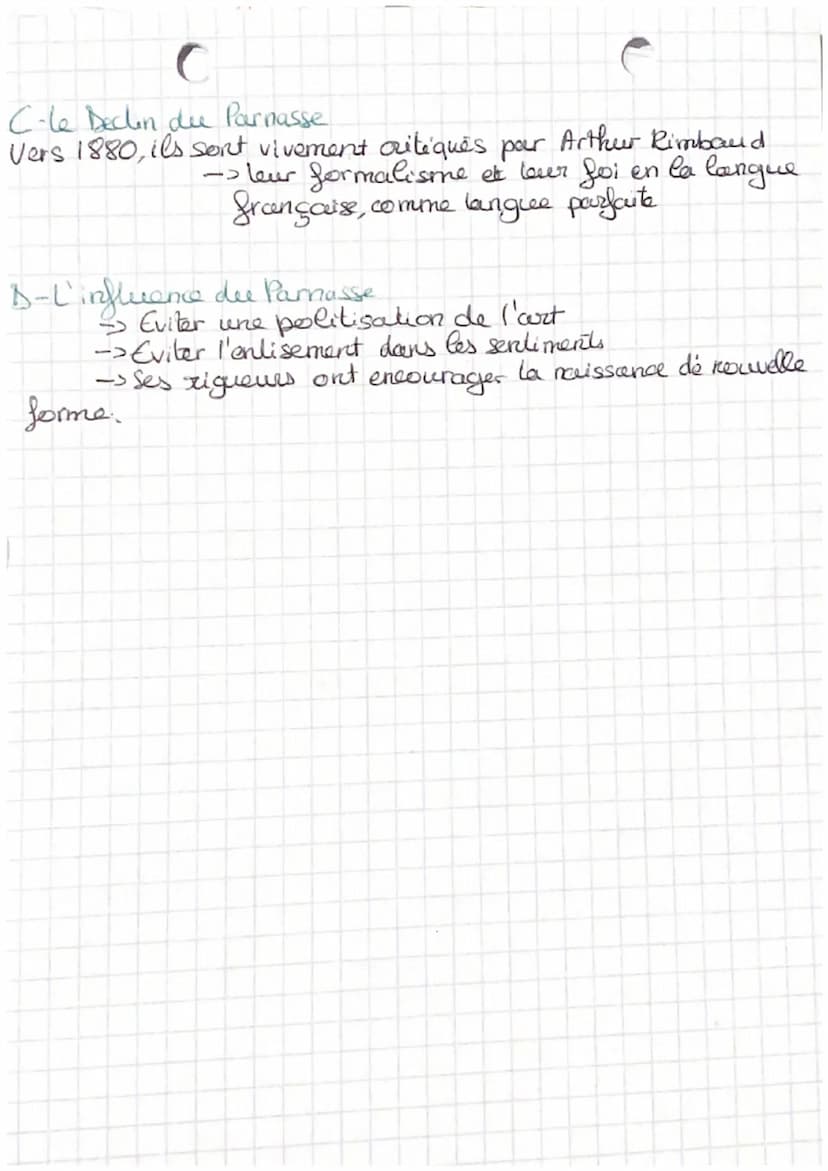 C-le Declin du Parnasse
Vers 1880, ils sont vivement critiqués par Arthur Rimbaud
-> leur formalisme et leur foi en la langue
française, comme langue parfaite
D-L'influence du Parnasse
-> Eviter une politisation de l'art
-> Eviter l'enlisement dans les sentiments
-> Ses rigueurs ont encourager la naissance de nouvelle
forme.